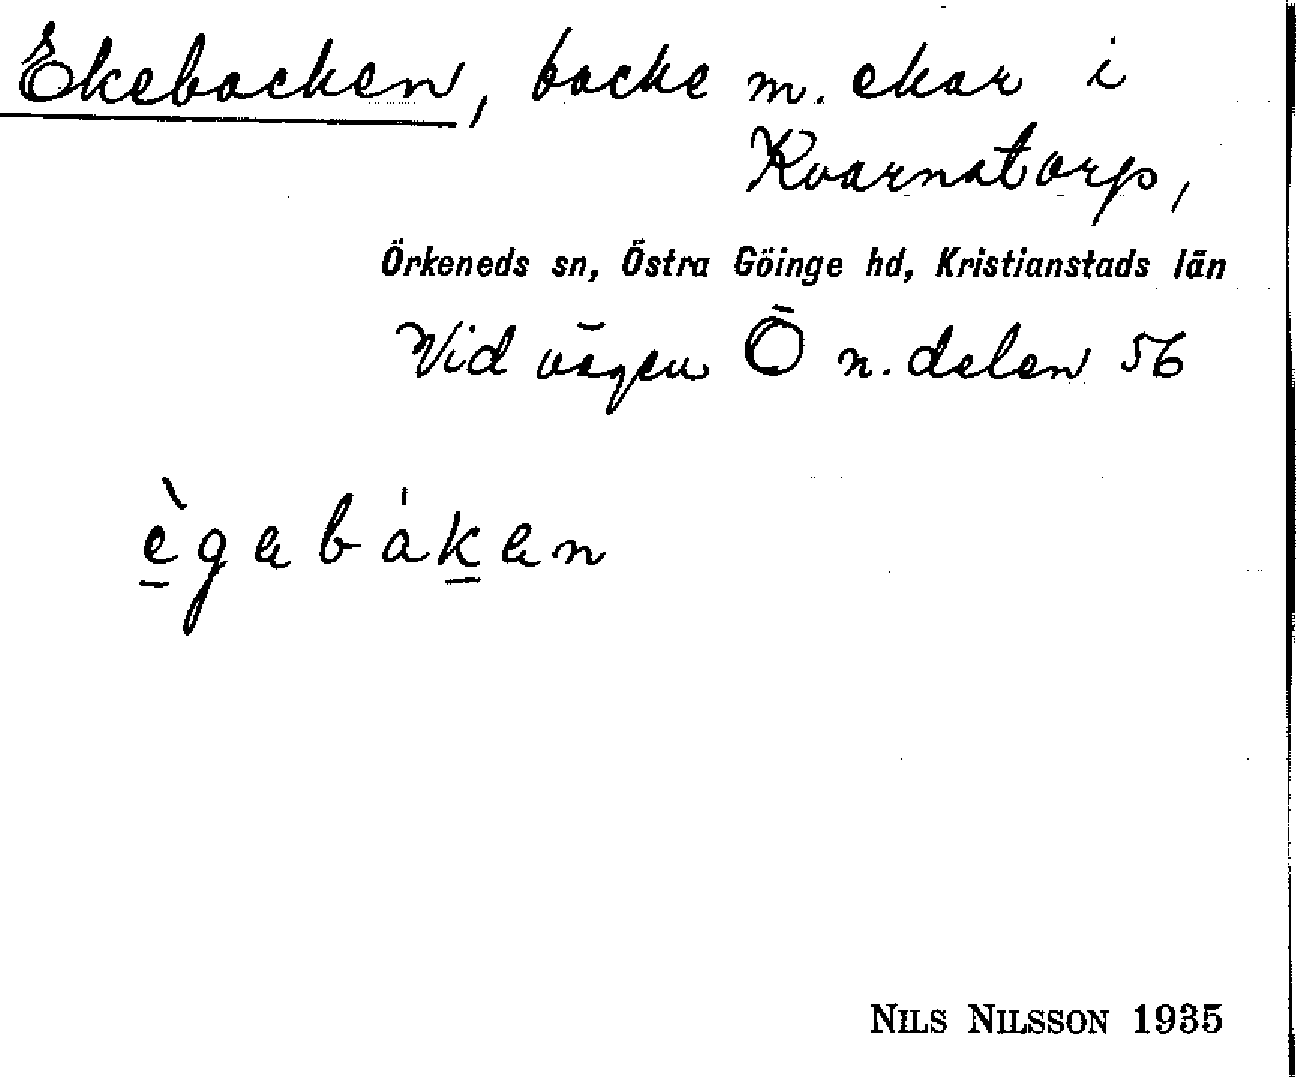 Ekebacken, backe m. ekar i
Kvarnatorp,
Örkeneds sn, Östra Göinge hd, Kristianstads län
Vid vägen Ö n. delen 56
ègabákan
NILS NILSSON 1935